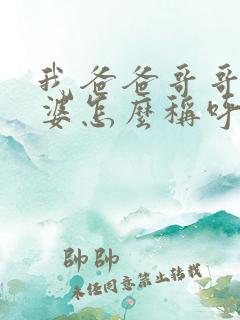 我爸爸哥哥
婆怎麼稱呼
帥帥
未经同意禁止转载